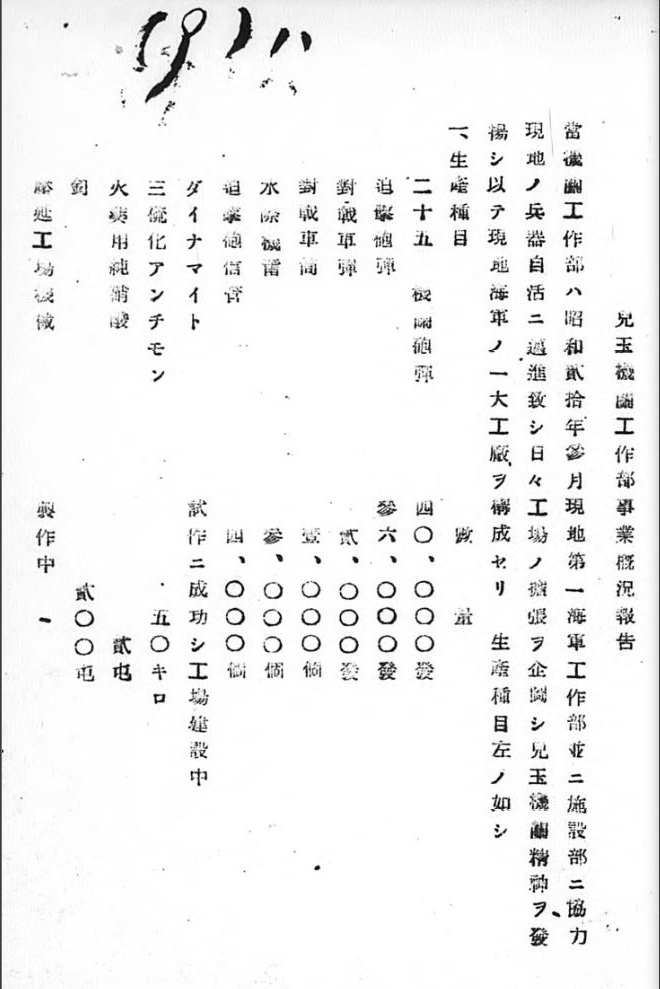 兒玉機關工作部事業概況報告
當機關工作部ハ昭和貳拾年參月現地第一海軍工作部並ニ施設部ニ協力
現地ノ兵器自活ニ邁進致シ日々工場ノ擴張ヲ企圖シ兒玉機關精神ヲ發
揚シ以テ現地海軍ノ一大工廠ヲ構成セリ 生產種目左ノ如シ
一、生產種目 數量
二十五 機關砲彈 四〇、〇〇〇發
迫擊砲彈 參六、〇〇〇發
對戰車彈 貳、〇〇〇發
對戰車筒 壹、〇〇〇個
水際機雷 參、〇〇〇個
迫擊砲信管 四、〇〇〇個
ダイナマイト 試作ニ成功シ工場建設中
三硫化アンチモン 五〇キロ
火藥用純硝酸 貳屯
銅 貳〇〇屯
壓延工場機械 製作中